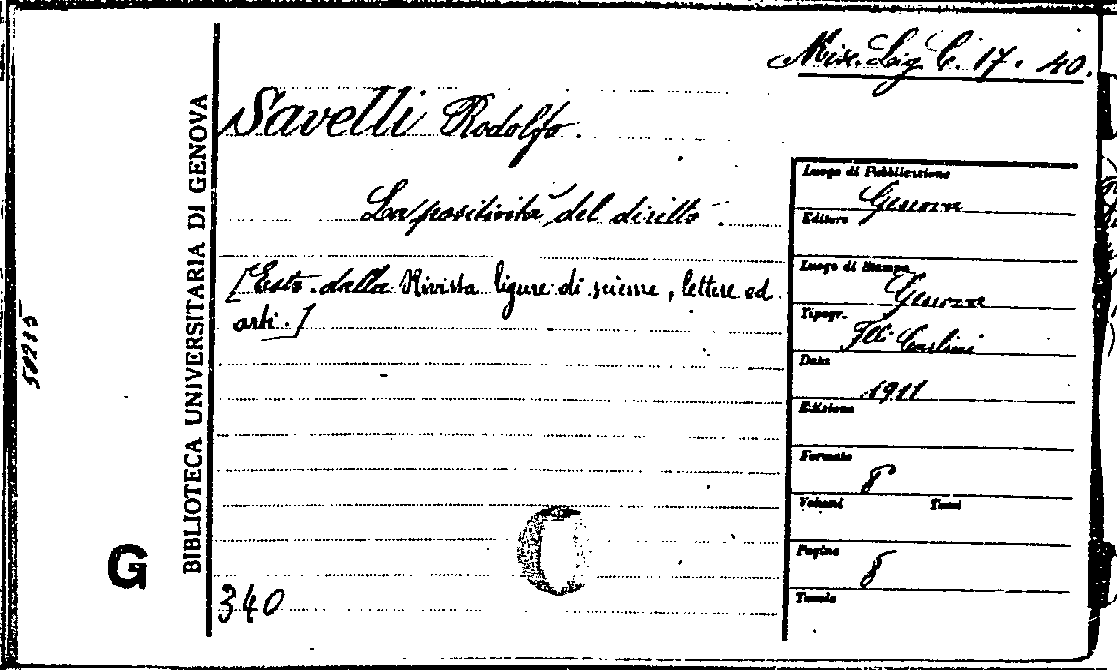 Misc. Lig. C. 17. 40.
Savelli Rodolfo.
La positività del diritto.
[Estr. dalla Rivista ligure di scienze, lettere ed
arti.]
340
BIBLIOTECA UNIVERSITARIA DI GENOVA
G
50215
Luogo di Pubblicazione
Genova
Editore
Luogo di Stampa
Genova
Tipogr.
F.lli Carlini
Data
1911
Edizione
Formato
8
Volumi Tomi
Pagine
8
Tavole